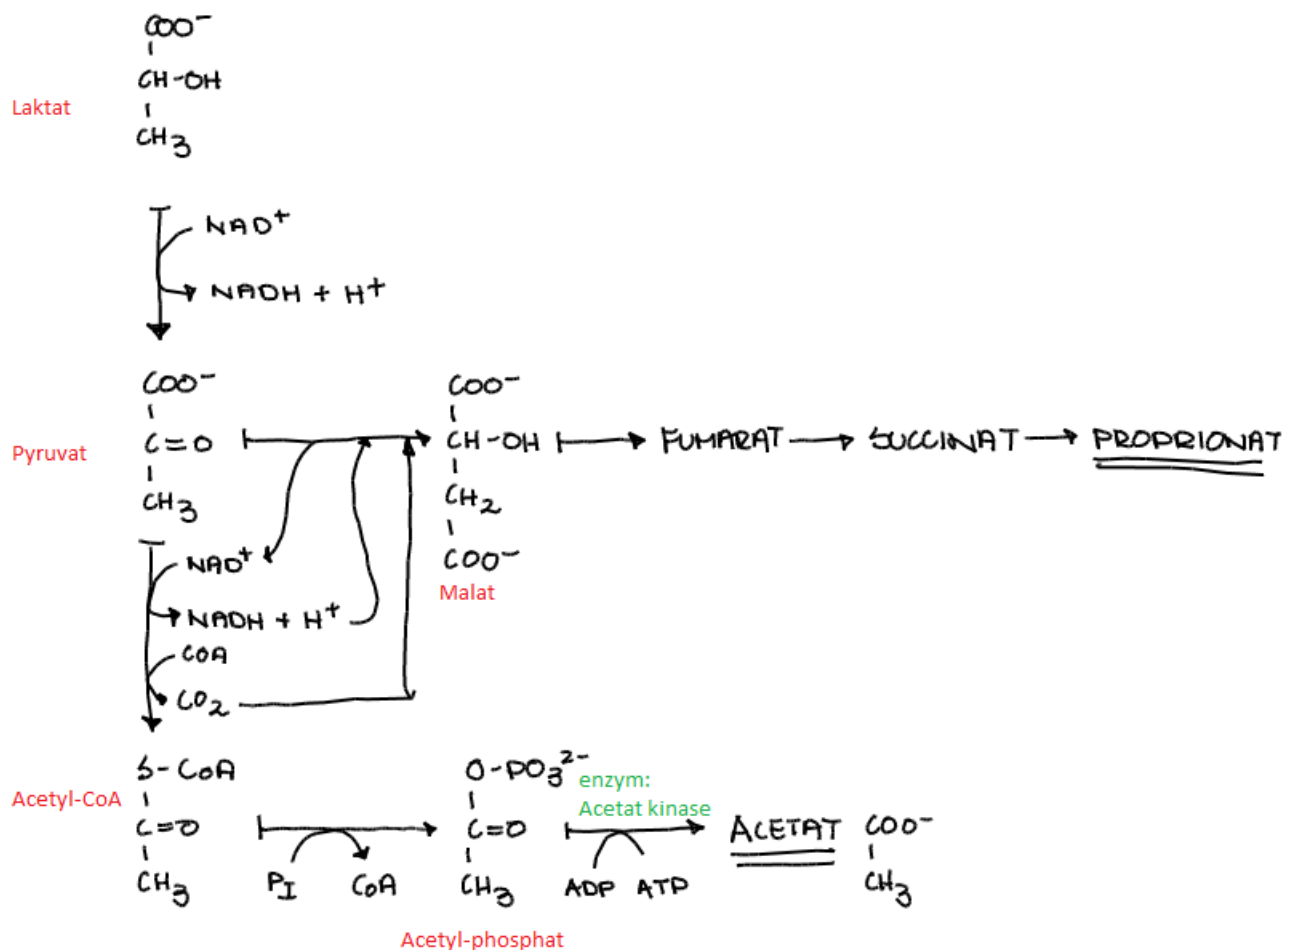 COO⁻
CH-OH
Laktat
CH₃
NAD⁺
NADH + H⁺
COO⁻
C=O
Pyruvat
CH₃
COO⁻
CH-OH
CH₂
COO⁻
Malat
FUMARAT
SUCCINAT
PROPRIONAT
NAD⁺
NADH + H⁺
COA
CO₂
S-CoA
Acetyl-CoA
C=O
CH₃
PI
CoA
O-PO₃²⁻
C=O
CH₃
Acetyl-phosphat
enzym:
Acetat kinase
ADP ATP
ACETAT
COO⁻
CH₃